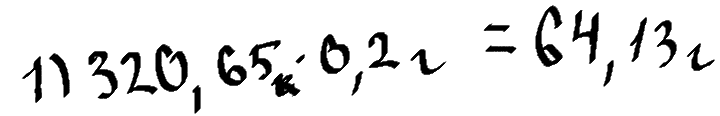 1) 320,65к · 0,2г = 64,13г